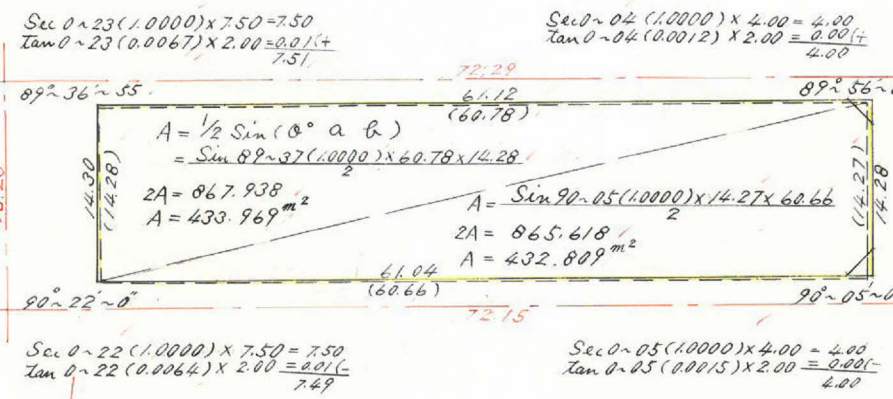 Sec 0~23 (1.0000) x 7.50 = 7.50
tan 0~23 (0.0067) x 2.00 = 0.01(+
7.51
Sec 0~04 (1.0000) x 4.00 = 4.00
tan 0~04 (0.0012) x 2.00 = 0.00(+
4.00
72.29
89°36'~55
61.12
(60.78)
89~56~
A = 1/2 Sin (θ° a b)
= Sin 89~37 (1.0000) x 60.78 x 14.28
2
2A = 867.938
A = 433.969 m²
14.30
(14.28)
A = Sin 90~05 (1.0000) x 14.27 x 60.66
2
2A = 865.618
A = 432.809 m²
(14.27)
14.28
61.04
(60.66)
90~22'~0"
90°~05~0
72.15
Sec 0~22 (1.0000) x 7.50 = 7.50
tan 0~22 (0.0064) x 2.00 = 0.01(-
7.49
Sec 0~05 (1.0000) x 4.00 = 4.00
tan 0~05 (0.0015) x 2.00 = 0.00(-
4.00